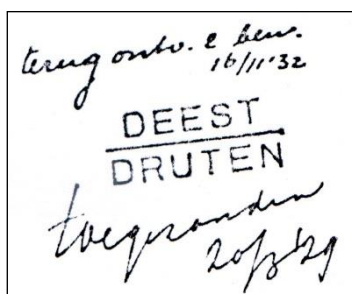 terug ontv. 2 bew.
16/11'32
DEEST
DRUTEN
toegezonden
20/3'29